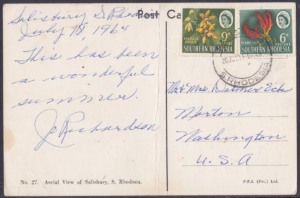 Salisbury S. Rhod
July 18, 1964
This has been
a wonderful
summer.
J. Richardson
Post Ca
9d
SOUTHERN RHODESIA
6d
SOUTHERN RHODESIA
S. RHODESIA
Mr & Mrs
Morton
Washington
U.S.A
No. 27. Aerial View of Salisbury, S. Rhodesia.
(Pvt.) Ltd.